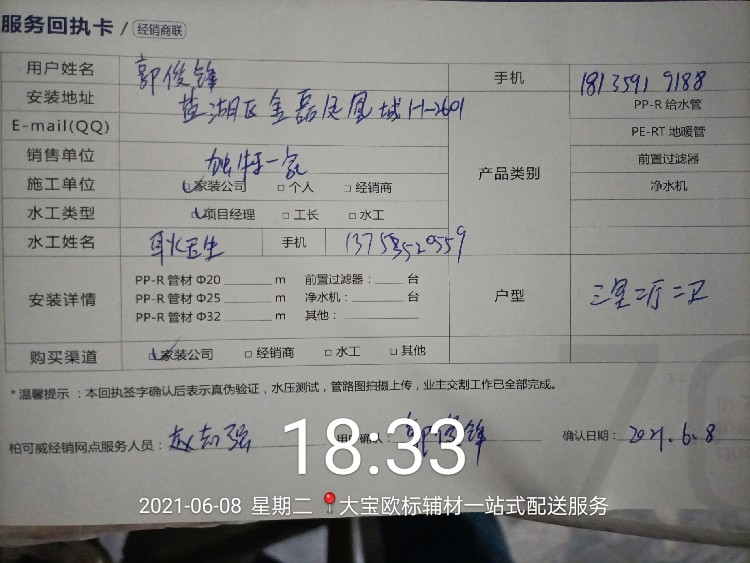 服务回执卡 / 经销商联
用户姓名 郭俊锋 手机 18135919188
安装地址 盐湖区金磊凤凰城H-2601 PP-R 给水管
E-mail(QQ) PE-RT 地暖管
销售单位 独特一家 产品类别 前置过滤器
施工单位 家装公司 □ 个人 □ 经销商 净水机
水工类型 项目经理 □ 工长 □ 水工
水工姓名 手机 13753520559
安装详情 PP-R 管材 Φ20 ______ m 前置过滤器：____ 台 户型 三室二厅二卫
PP-R 管材 Φ25 ______ m 净水机：______ 台
PP-R 管材 Φ32 ______ m 其他：
购买渠道 家装公司 □ 经销商 □ 水工 □ 其他
*温馨提示：本回执签字确认后表示真伪验证，水压测试，管路图拍摄上传，业主交割工作已全部完成。
柏可威经销网点服务人员：赵志强 用户确认：郭俊锋 确认日期：2021.6.8
18:33
2021-06-08 星期二 大宝欧标辅材一站式配送服务